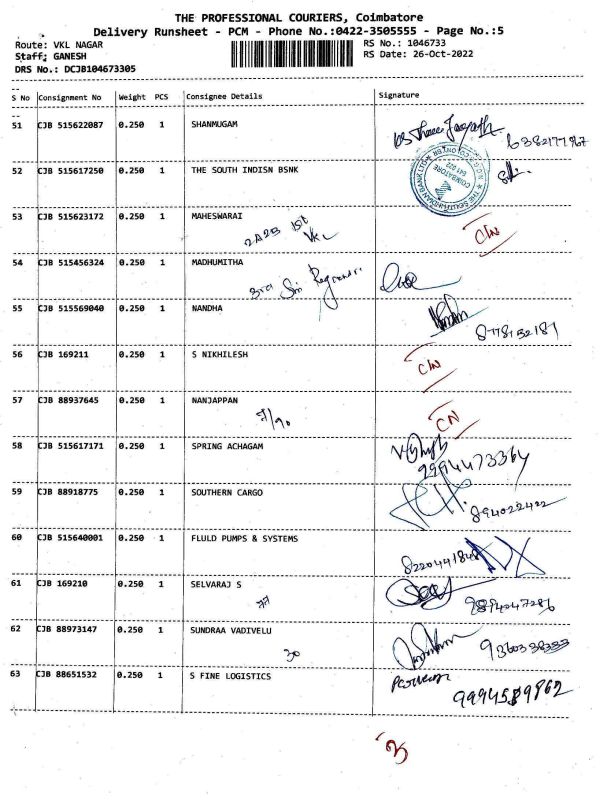 THE PROFESSIONAL COURIERS, Coimbatore
Delivery Runsheet - PCM - Phone No.:0422-3505555 - Page No.:5
Route: VKL NAGAR RS No.: 1046733
Staff: GANESH RS Date: 26-Oct-2022
DRS No.: DCJB104673305
S No Consignment No Weight PCS Consignee Details Signature
51 CJB 515622087 0.250 1 SHANMUGAM
52 CJB 515617250 0.250 1 THE SOUTH INDISN BSNK
53 CJB 515623172 0.250 1 MAHESWARAI C/N
54 CJB 515456324 0.250 1 MADHUMITHA
55 CJB 515569040 0.250 1 NANDHA
56 CJB 169211 0.250 1 S NIKHILESH C/N
57 CJB 88937645 0.250 1 NANJAPPAN CN
58 CJB 515617171 0.250 1 SPRING ACHAGAM
9994473364
59 CJB 88918775 0.250 1 SOUTHERN CARGO 894022422
60 CJB 515640001 0.250 1 FLULD PUMPS & SYSTEMS
61 CJB 169210 0.250 1 SELVARAJ S
77
62 CJB 88973147 0.250 1 SUNDRAA VADIVELU
30
63 CJB 88651532 0.250 1 S FINE LOGISTICS
9994589862